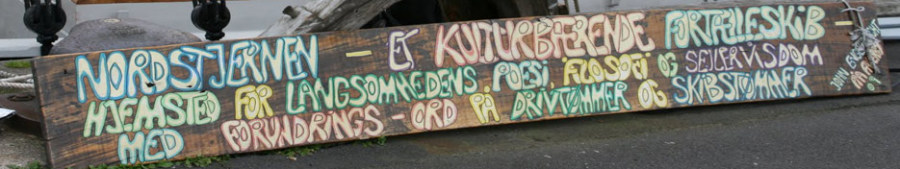 NORDSTJERNEN – ET KULTURBÆRENDE FORTÆLLESKIB –
HJEMSTED FOR LANGSOMHEDENS POESI FILOSOFI OG SEJLERVISDOM
MED FORUNDRINGS-ORD PÅ DRIVTØMMER OG SKIBSTØMMER